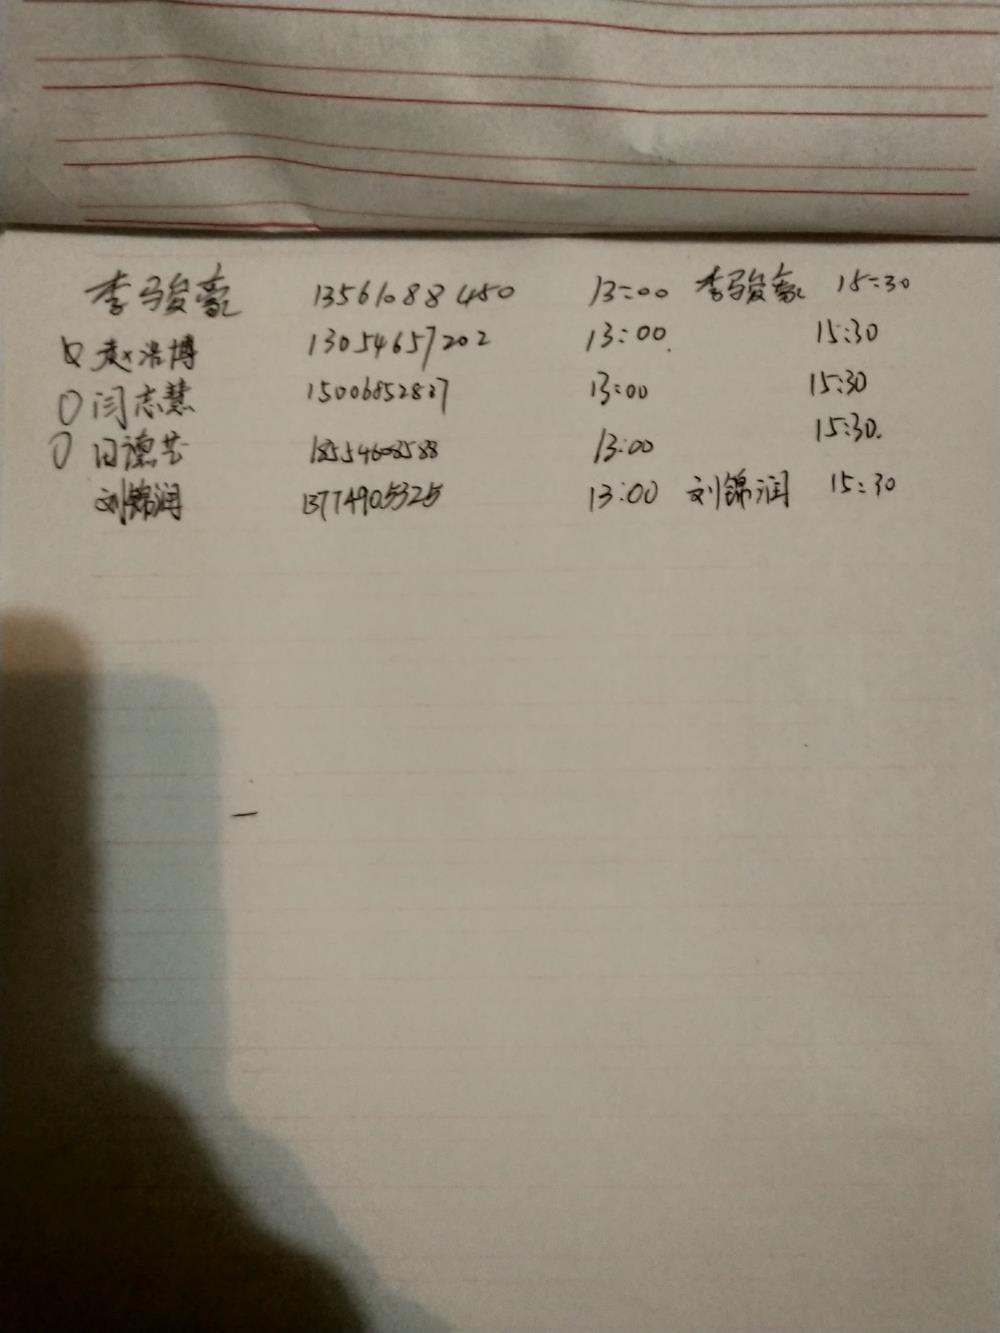 李骏豪 13561088450 13:00 李骏豪 15:30
赵浩博 13054657202 13:00 15:30
闫志慧 15006852837 13:00 15:30
德芸 18554608588 13:00 15:30.
刘锦润 13774905325 13:00 刘锦润 15:30